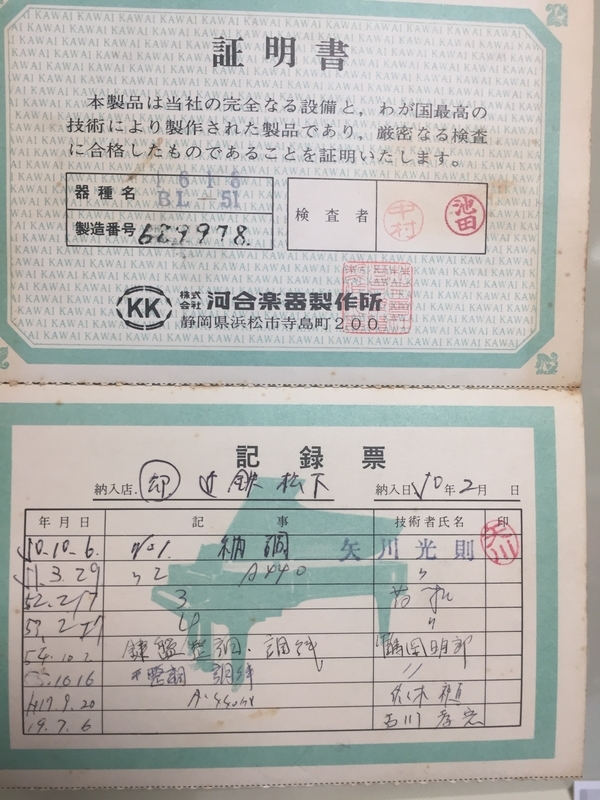 証明書
本製品は当社の完全なる設備と，わが国最高の
技術により製作された製品であり，厳密なる検査
に合格したものであることを証明いたします。
器種名 BL-51
製造番号 629978.
検査者 中村 池田
KK 株式会社 河合楽器製作所
静岡県浜松市寺島町200
記録票
納入店. 鉄 松下 納入日 50年2月 日
年月日 記事 技術者氏名 印
50.10-6. No1. 納調 矢川光則 矢川
3.29 〃2 A440 〃
52.2/7 3
4 〃
54.10.2 鍵盤整調・調律 明郎
10.16 整調 調律 〃
H17.9.20
19.7.6 石川